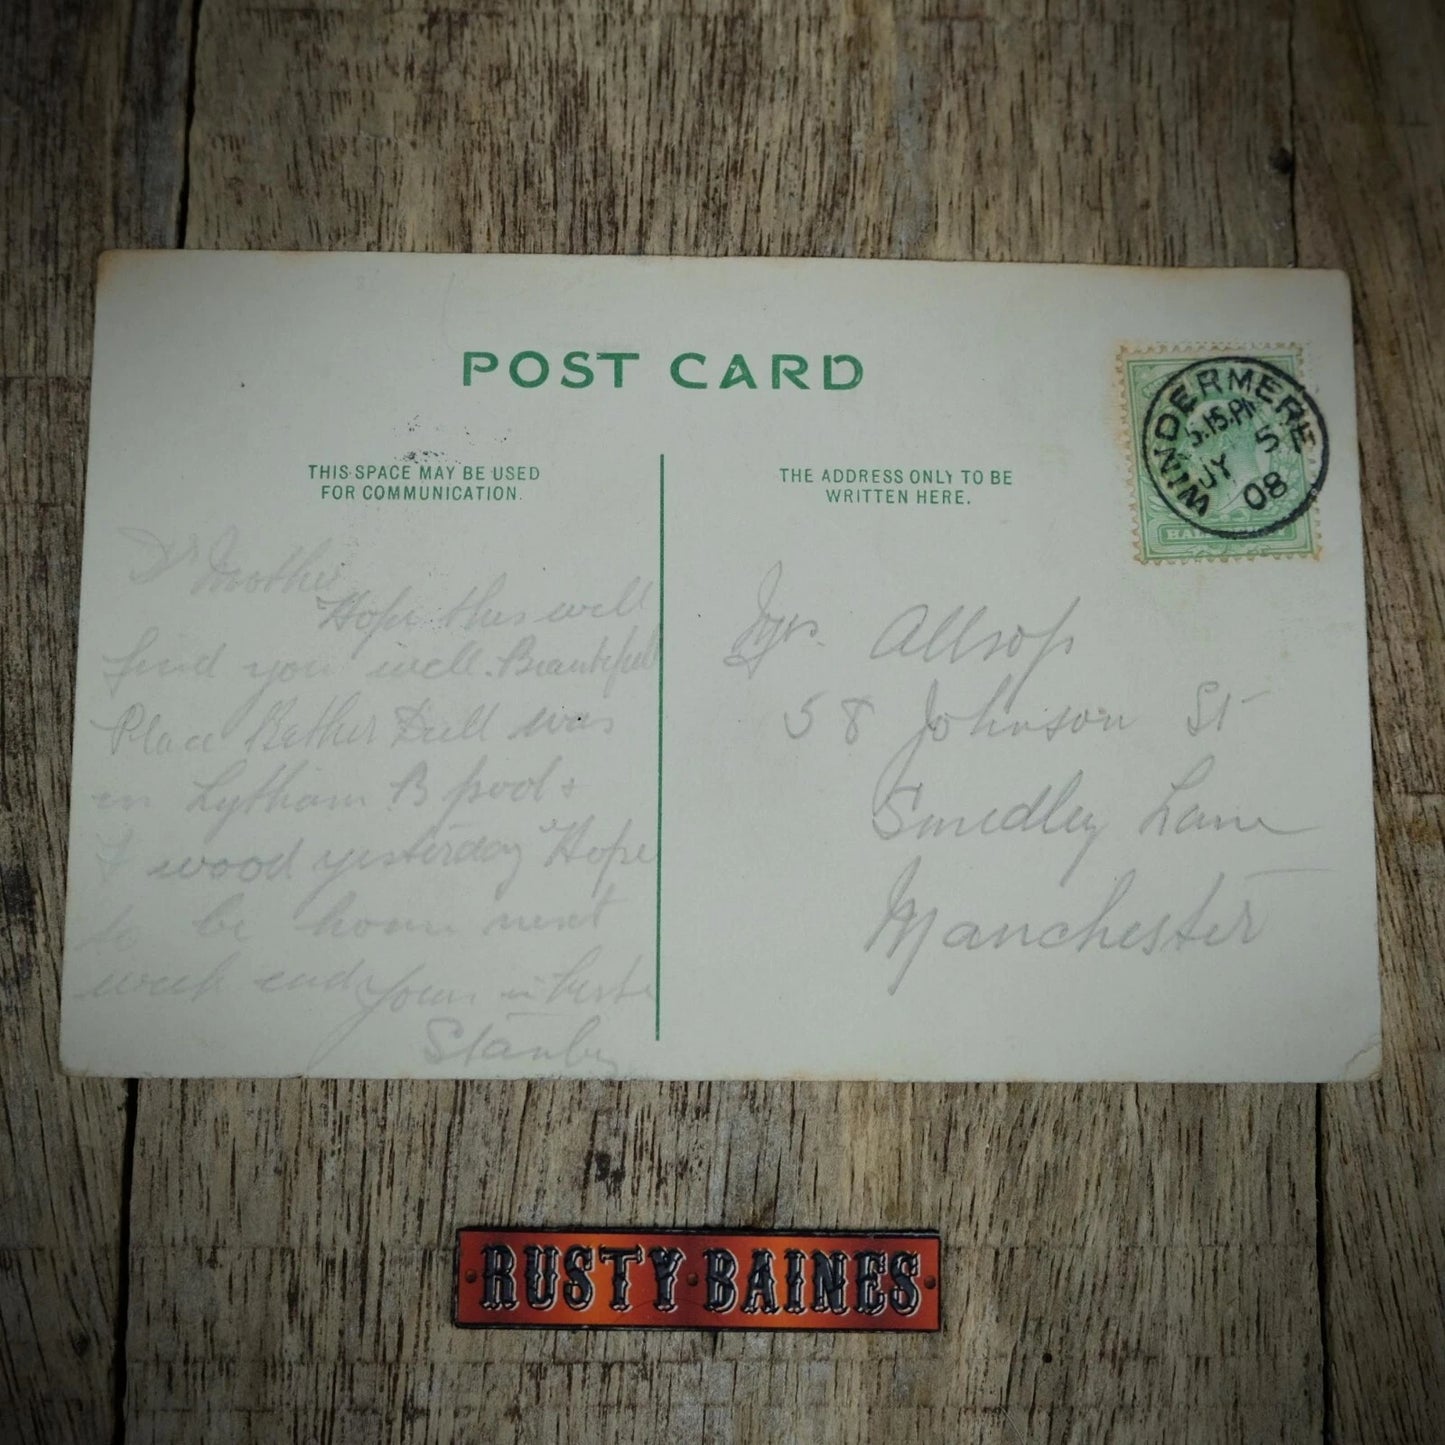 POST CARD
THIS SPACE MAY BE USED
FOR COMMUNICATION.
THE ADDRESS ONLY TO BE
WRITTEN HERE.
WINDERMERE
5.15.PM
JY 5
08
HALFPENNY
Dr Mother
Hope this will
find you well. Beautiful
Place Rather Dull was
in Lytham B pool &
F wood yesterday Hope
to be home next
week end Yours
Stanley
Mrs. Allsop
58 Johnson St
Smedley Lane
Manchester
RUSTY·BAINES